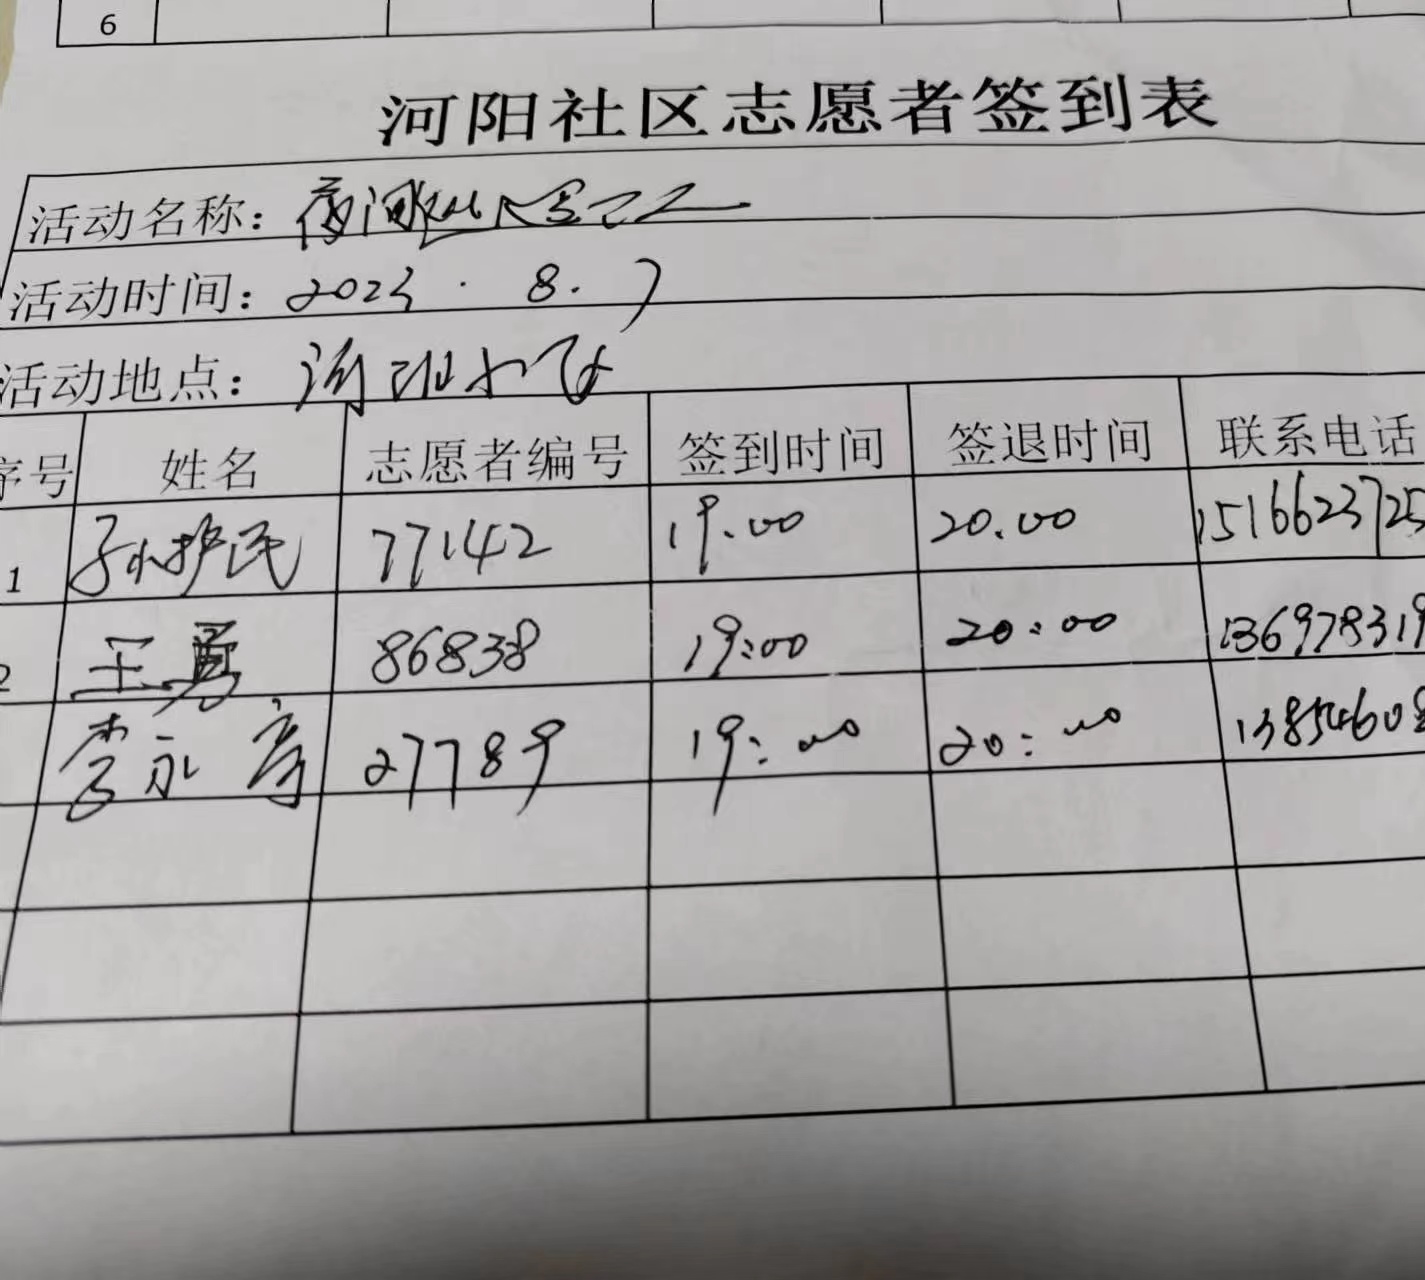 6
河阳社区志愿者签到表
活动名称：夜间巡
活动时间：2023.8.7
活动地点：河阳小区
序号 姓名 志愿者编号 签到时间 签退时间 联系电话
1 孙护民 77142 19.00 20.00 1516623725
2 王勇 86838 19:00 20:00 136978319
李永 27789 19:00 20:00 13854608